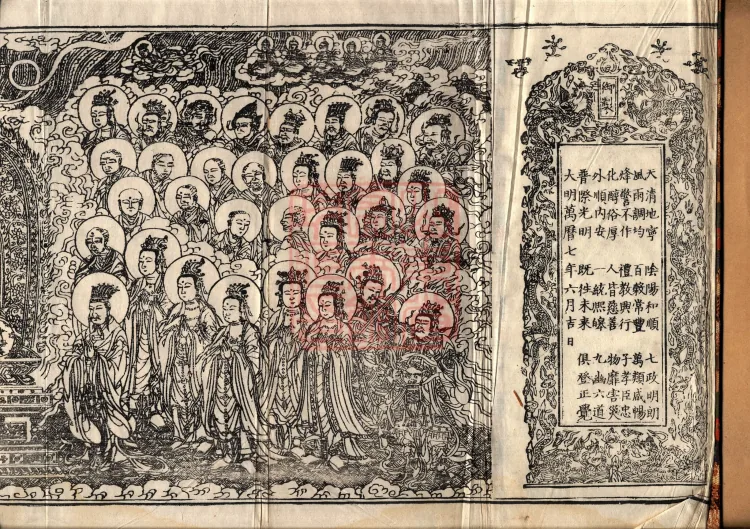 御製
天清地寧 陰陽和順 七政明朗
風雨調均 百穀常豐 萬類咸暢
烽警不作 禮教興行 子孝臣忠
化醇俗厚 人皆慈善 物靡害災
外順内安 一統熙皞 九幽六道
普際光明 既往未來 俱登正覺
大明萬曆七年六月吉日